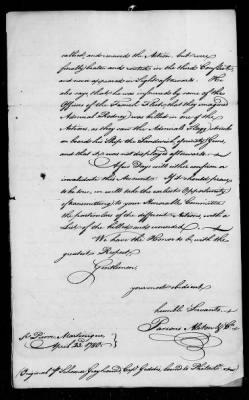 rallied, and renewed the Action, but were
finally beaten and routed in the third Conflict,
and never appeared in Sight afterwards. He
also says, that he was informed by some of the
Officers of the French Fleet, that they imagined
Admiral Rodney was killed in one of the
Actions, as they saw the Admiral's Flagg struck
on board his Ship the Sandwich of ninety Guns,
and that it was not displayed afterwards.
A few Days will either confirm or
invalidate this Account. If it should prove
to be true, we will take the earliest Opportunity
of transmitting to your Honorable Committee
the particulars of the different Actions, with a
List of the killed and wounded.
We have the Honor to be, with the
greatest Respect,
Gentlemen,
your most obedient
humble Servants,
Parsons Alston & Co.
St. Pierre Martinique,
April 23d. 1780.
Original Schooner Greyhound, Capt. bound to Philada.